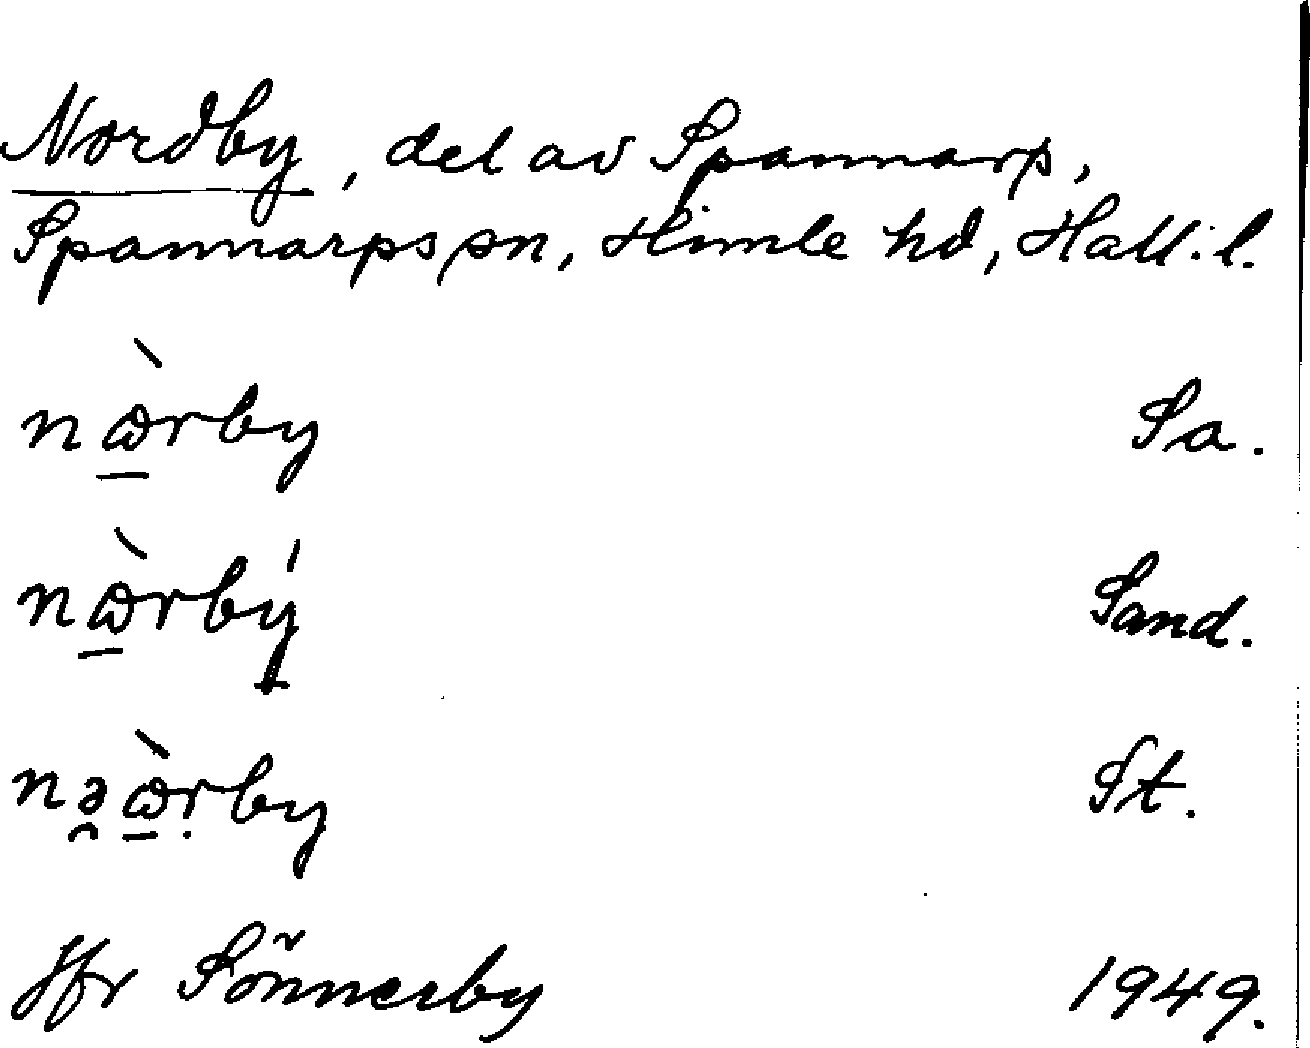 Nordby, del av Spannarp,
Spannarps sn, Himle hd, Hall. l.
nꞷ̠̀rby Sa.
nꞷ̠̀rbý̠ Sand.
nə̯ꞷ̠̀ṛby St.
Jfr Sönnerby 1949.